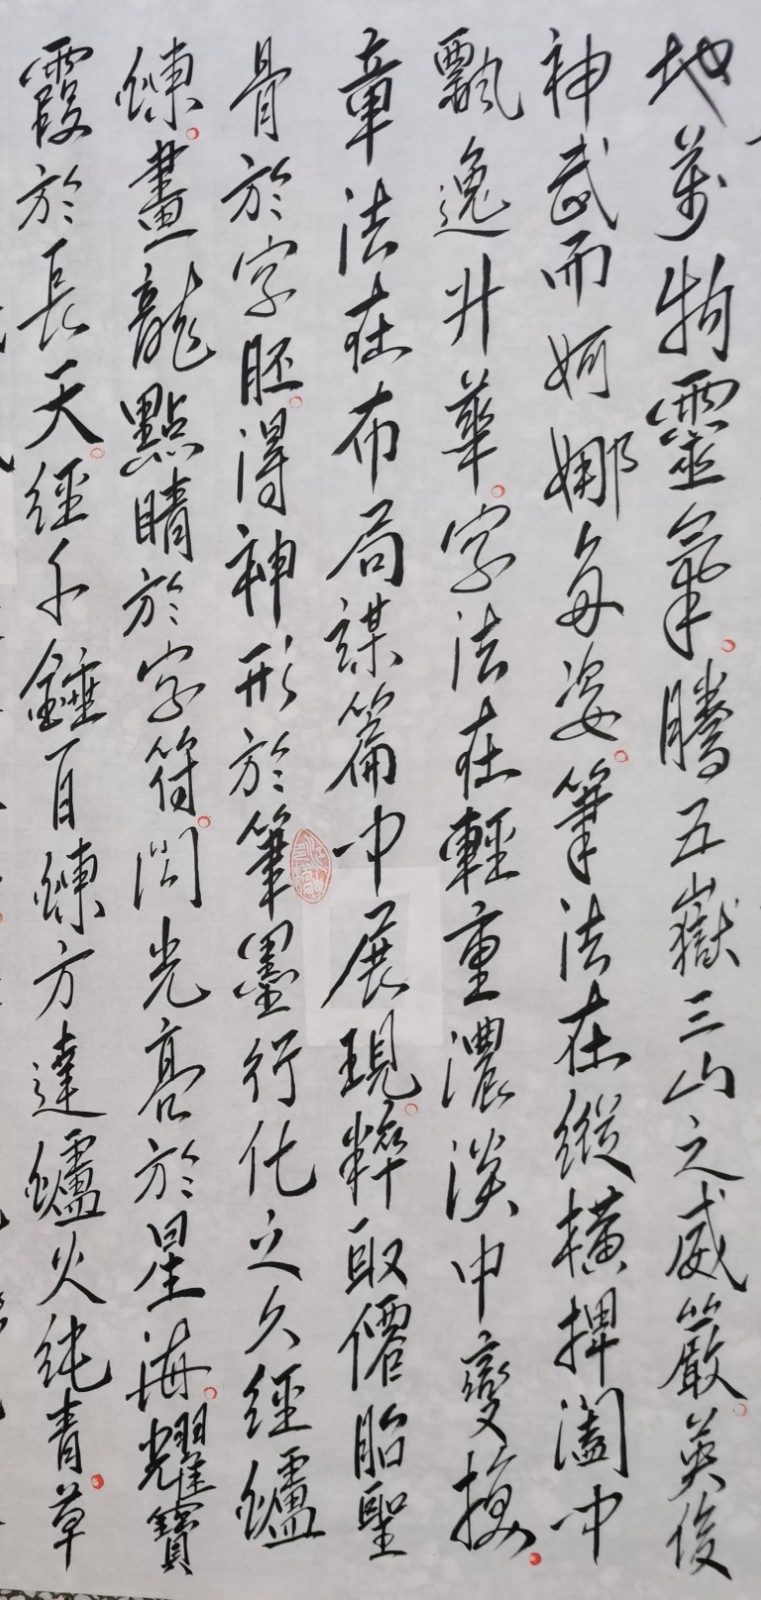 地萬物靈氣。騰五嶽三山之威嚴。英俊
神武而婀娜多姿。筆法在縱橫捭闔中
飄逸升華。字法在輕重濃淡中變換。
章法在布局謀篇中展現。粹取僊胎聖
骨於字胚。得神形於筆墨行化之久經鑪
煉。畫龍點睛於字符。閃光亮於星海。耀寶
霞於長天。經千錘百煉方達鑪火純青。草